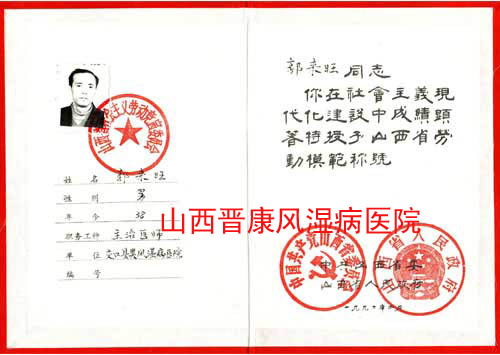 山西省社会主义劳动竞赛委员会
姓名 郭来旺
性别 男
年令
职务工种 主治医师
单位 交口县类风湿病医院
编号
郭来旺同志
你在社會主義現
代化建設中成績顕
著特授予山西省勞
動模範称號
山西晋康风湿病医院
中国共产党山西省委员会
山西省人民政府
中共山西省委
山西省人民政府